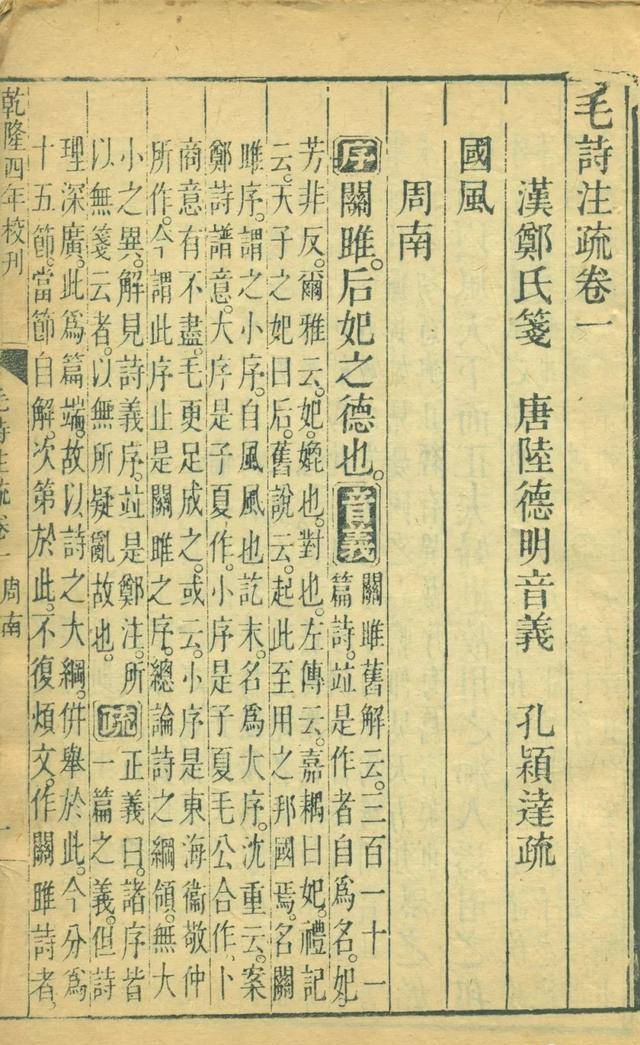 毛詩注疏卷一
漢鄭氏箋　唐陸德明音義　孔穎達疏
國風
周南
序關雎。后妃之德也。音義
關雎舊解云。三百一十一
篇詩。竝是作者自爲名。妃。
芳非反。爾雅云。妃。媲也。對也。左傳云。嘉耦曰妃。禮記
云。天子之妃曰后。舊說云。起此至用之邦國焉。名關
雎序。謂之小序。自風風也訖末。名爲大序。沈重云。案
鄭詩譜意。大序是子夏作。小序是子夏毛公合作。卜
商意有不盡。毛更足成之。或云。小序是東海衞敬仲
所作。今謂此序止是關雎之序。總論詩之綱領。無大
小之異。解見詩義序。竝是鄭注。所
以無箋云者。以無所疑亂故也。
疏
正義曰。諸序皆
一篇之義。但詩
理深廣。此爲篇端。故以詩之大綱。併舉於此。今分爲
十五節。當節自解。次第於此。不復煩文。作關雎詩者。
乾隆四年校刊
毛詩注疏卷一　周南
一